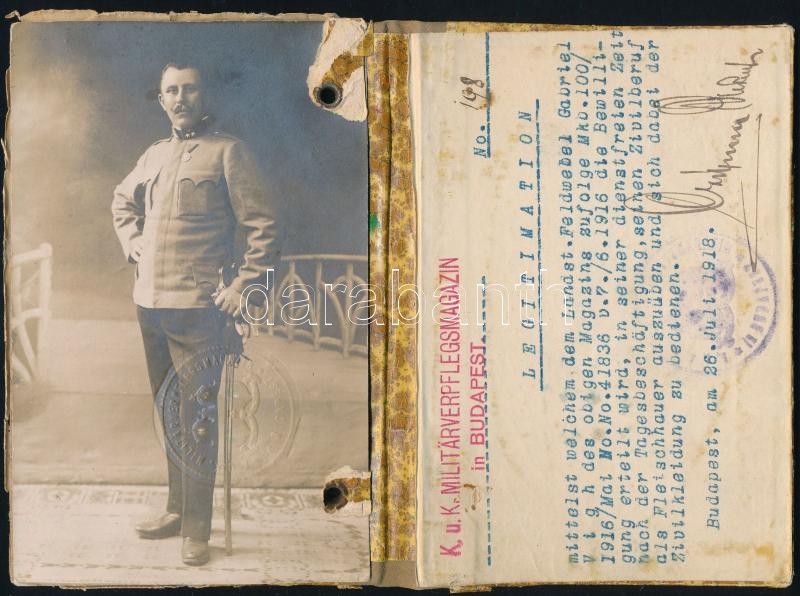 K. u. K. MILITÄRVERPFLEGSMAGAZIN
in BUDAPEST.
No. 198
LEGITIMATION
mittelst welchem dem Landst.Feldwebel Gabriel
V i g h des obigen Magazins zufolge Mkb.100/
1916/Mai Mo.No.41836 v.7./6.1916 die Bewilli-
gung erteilt wird, in seiner dienstfreien Zeit
nach der Tagesbeschäftigung, seinen Zivilberuf
als Fleischhauer auszuüben und sich dabei der
Zivilkleidung zu bedienen.
Budapest, am 26.Juli.1918.
darabanth